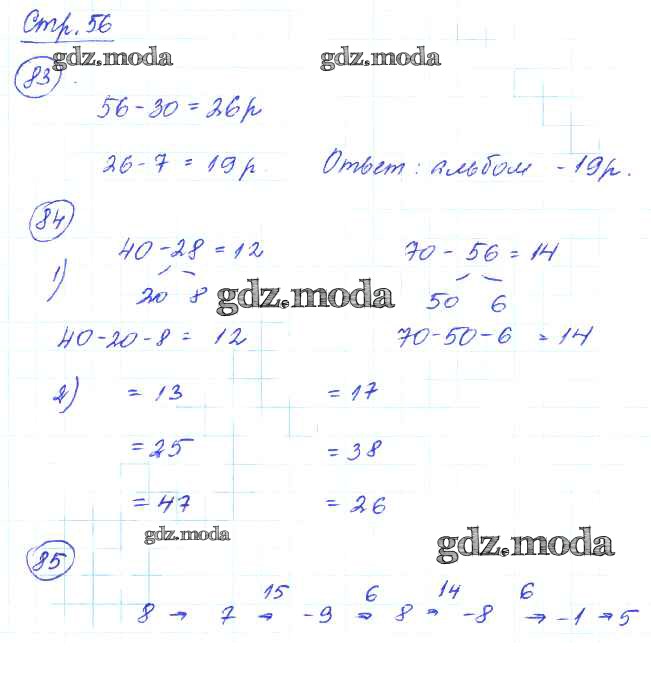 Стр. 56
gdz.moda gdz.moda
83
56-30 = 26р
26-7 = 19р. Ответ: альбом - 19р.
84
1) 40-28 = 12 70 - 56 = 14
20 8 50 6
gdz.moda
40-20-8 = 12 70-50-6 = 14
2) = 13 = 17
= 25 = 38
= 47 = 26
gdz.moda gdz.moda
85
15 6 14 6
8 → 7 → -9 → 8 → -8 → -1 → 5